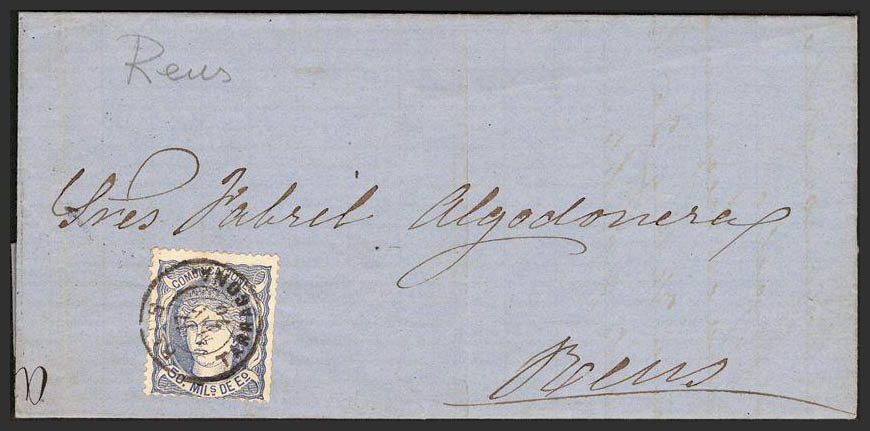 Reus
Sres Fabril Algodonera
COMUNICACIONES
TARRAGONA
50. MILS DE EO
Reus